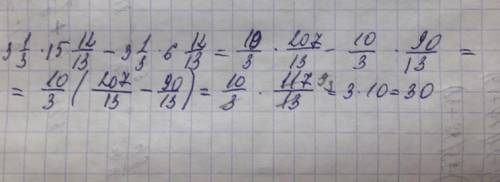 3 1/3 · 15 12/13 - 3 1/3 · 6 12/13 = 10/3 · 207/13 - 10/3 · 90/13 =
= 10/3 (207/13 - 90/13) = 10/3 · 117/13 = 3 · 10 = 30